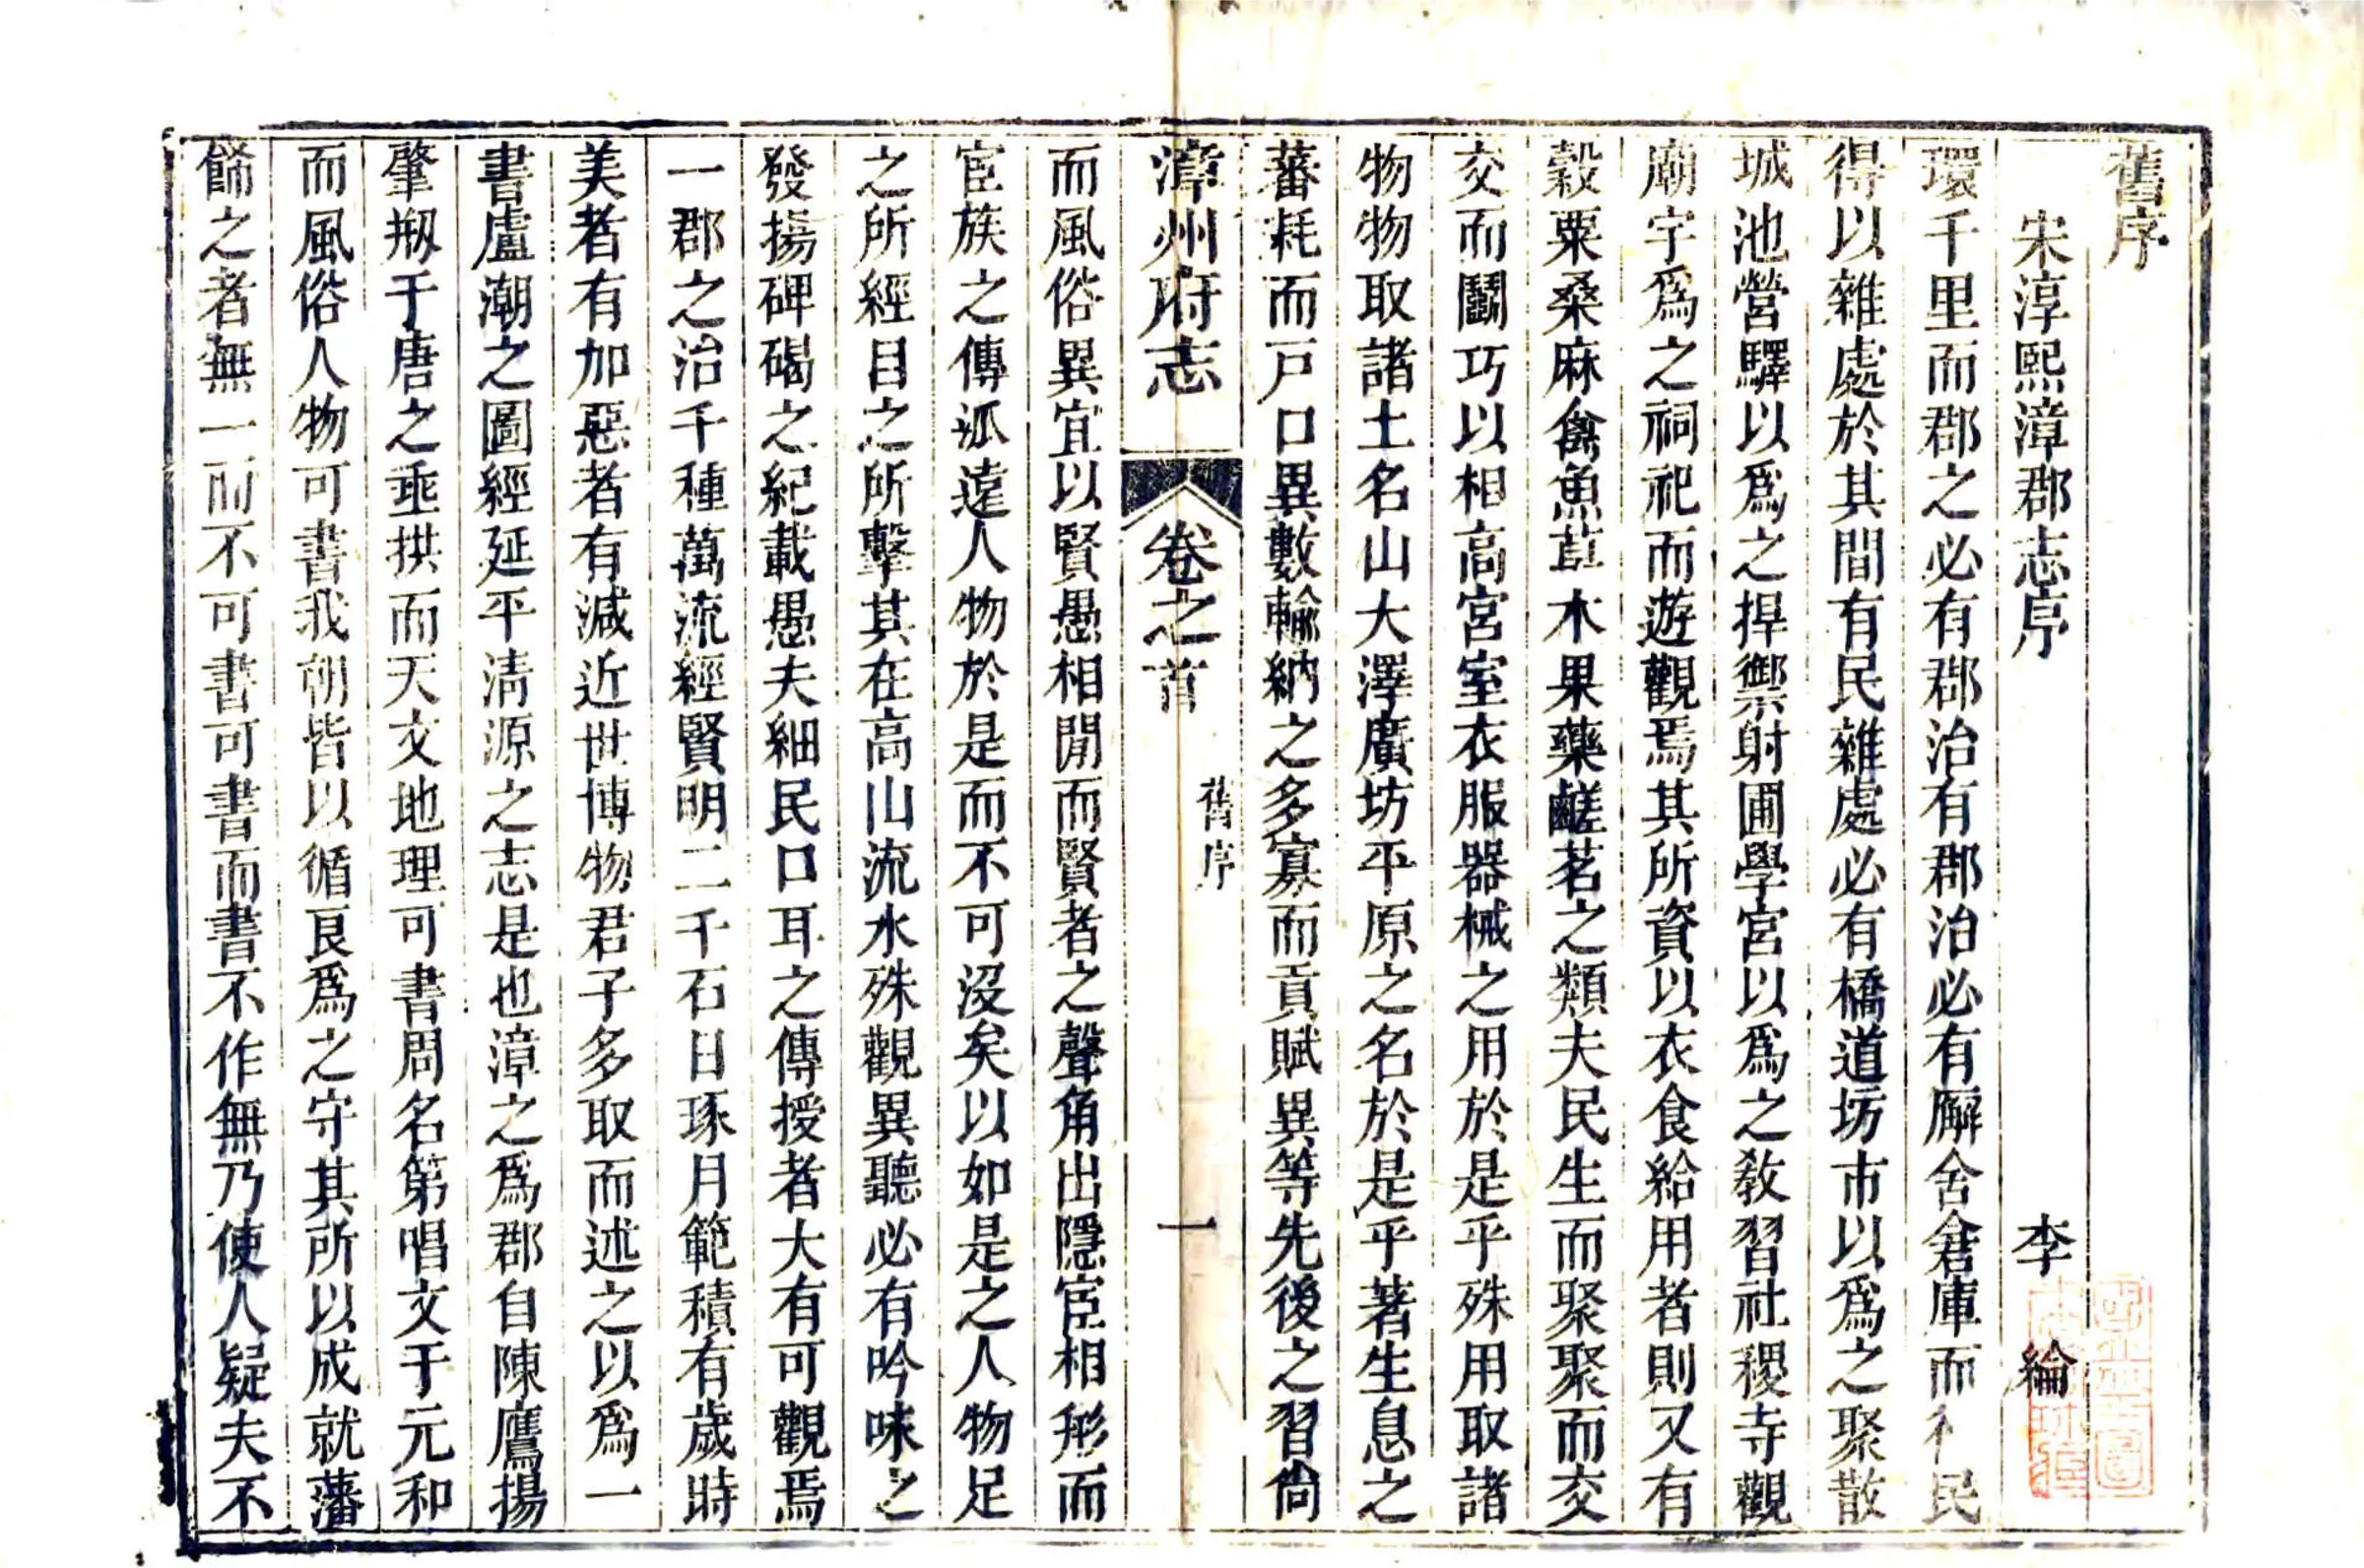 舊序
宋淳熙漳郡志序 李 綸
環千里而郡之必有郡治有郡治必有廨舍倉庫而民
得以雜處於其間有民雜處必有橋道坊市以為之聚散
城池營驛以為之捍禦射圃學宮以為之教習社稷寺觀
廟宇為之祠祀而遊觀焉其所資以衣食給用者則又有
穀粟桑麻禽魚草木果藥鹺茗之類夫民生而聚聚而交
交而鬭巧以相高宮室衣服器械之用於是乎殊用取諸
物物取諸土名山大澤廣坊平原之名於是乎著生息之
蕃耗而戸口異數輸納之多寡而貢賦異等先後之習尙
漳州府志 卷之首 舊序 一
而風俗異宜以賢愚相閒而賢者之聲角出隱宦相形而
宦族之傳派遠人物於是而不可沒矣以如是之人物足
之所經目之所擊其在高山流水殊觀異聽必有吟味之
發揚碑碣之紀載愚夫細民口耳之傳授者大有可觀焉
一郡之治千種萬流經賢明二千石日琢月範積有歲時
美者有加惡者有減近世博物君子多取而述之以為一
書盧潮之圖經延平清源之志是也漳之為郡自陳鷹揚
肇剏于唐之垂拱而天文地理可書周名第唱文于元和
而風俗人物可書我朝皆以循良為之守其所以成就藩
餙之者無一而不可書可書而書不作無乃使人疑夫不